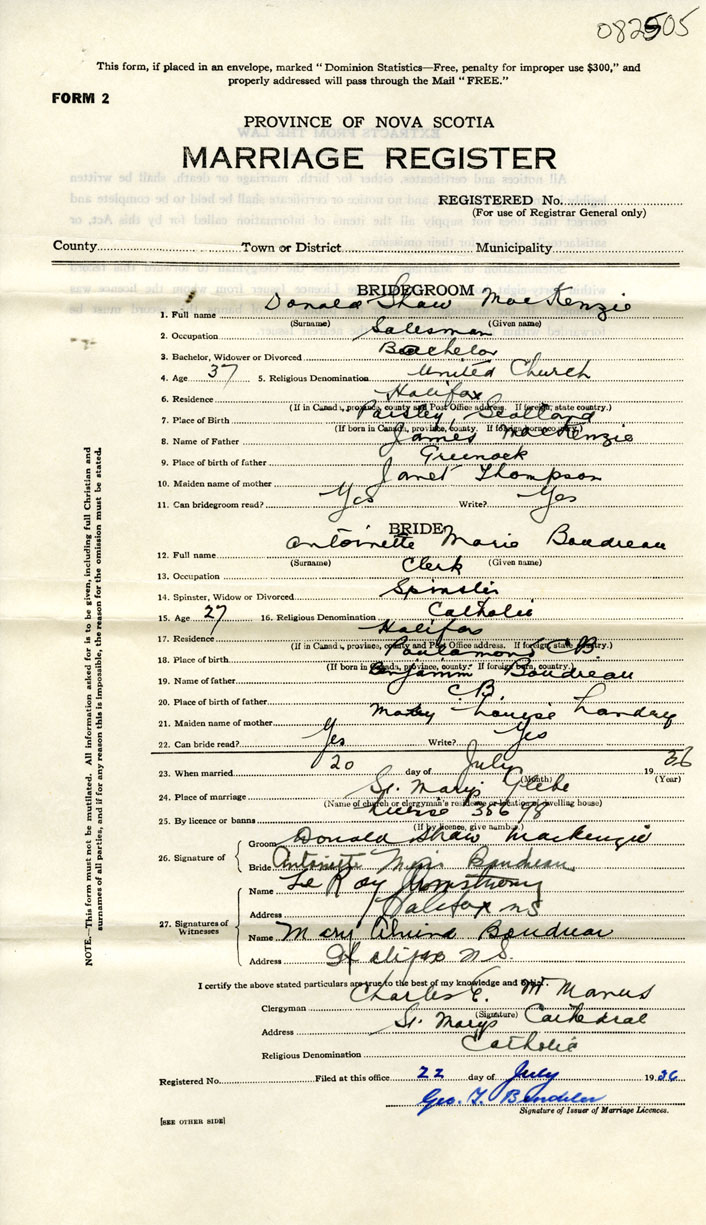 082505
This form, if placed in an envelope, marked "Dominion Statistics—Free, penalty for improper use $300," and
properly addressed will pass through the Mail "FREE."
FORM 2
PROVINCE OF NOVA SCOTIA
MARRIAGE REGISTER
REGISTERED No.
(For use of Registrar General only)
County Town or District Municipality
BRIDEGROOM
1. Full name Donald Shaw MacKenzie
(Surname) (Given name)
2. Occupation Salesman
3. Bachelor, Widower or Divorced Bachelor
4. Age 37 5. Religious Denomination United Church
6. Residence Halifax
(If in Canada, province, county and Post Office address. If foreign, state country.)
7. Place of Birth Paisley, Scotland
(If born in Canada, province, county. If foreign born, country.)
8. Name of Father James MacKenzie
9. Place of birth of father Greenock
10. Maiden name of mother Janet Thompson
11. Can bridegroom read? Yes Write? Yes
BRIDE
12. Full name Antoinette Marie Boudreau
(Surname) (Given name)
13. Occupation Clerk
14. Spinster, Widow or Divorced Spinster
15. Age 27 16. Religious Denomination Catholic
17. Residence Halifax
(If in Canada, province, county and Post Office address. If foreign, state country.)
18. Place of birth C.B.
(If born in Canada, province, county. If foreign born, country.)
19. Name of father Benjamin Boudreau
20. Place of birth of father C.B.
21. Maiden name of mother Mary Louise Landry
22. Can bride read? Yes Write? Yes
23. When married 20 day of July 1936
(Month) (Year)
24. Place of marriage St. Mary's Glebe
(Name of church or clergyman's residence or location of dwelling house)
25. By licence or banns License 38678
(If by licence, give number.)
26. Signature of
Groom Donald Shaw Mackenzie
Bride Antoinette Marie Boudreau
27. Signatures of Witnesses
Name LeRoy Armstrong
Address Halifax NS
Name Mary Boudreau
Address Halifax N.S.
I certify the above stated particulars are true to the best of my knowledge and belief.
Clergyman Charles E. McManus
(Signature)
Address St. Mary's Cathedral
Religious Denomination Catholic
Registered No. Filed at this office 22 day of July 1936
Geo. T.
Signature of Issuer of Marriage Licences.
[SEE OTHER SIDE]
NOTE.—This form must not be mutilated. All information asked for is to be given, including full Christian and
surnames of all parties, and if for any reason this is impossible, the reason for the omission must be stated.